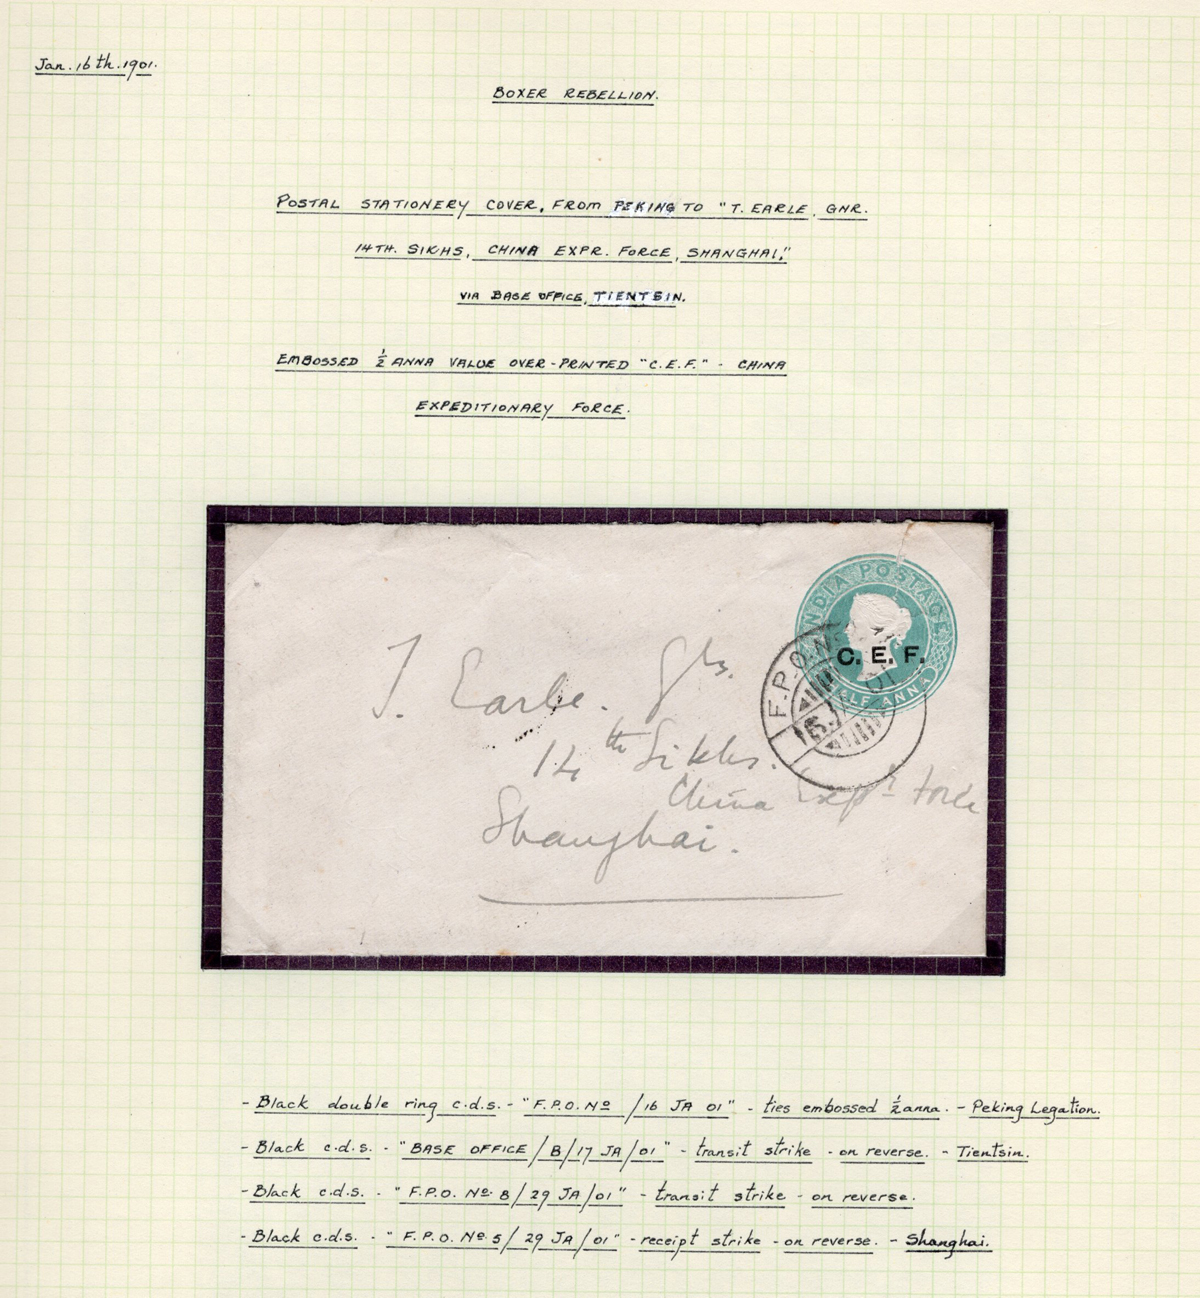 Jan. 16th. 1901.
BOXER REBELLION.
POSTAL STATIONERY COVER, FROM PEKING TO "T. EARLE, GNR.
14TH. SIKHS, CHINA EXPR. FORCE, SHANGHAI,"
VIA BASE OFFICE, TIENTSIN.
EMBOSSED ½ ANNA VALUE OVER-PRINTED "C.E.F." - CHINA
EXPEDITIONARY FORCE.
INDIA POSTAGE
C. E. F.
HALF ANNA
F.P.O. No
01
T. Earle.
14th Sikhs.
China Expr Force
Shanghai.
- Black double ring c.d.s. - "F.P.O. No /16 JA 01" - ties embossed ½ anna. - Peking Legation.
- Black c.d.s. - "BASE OFFICE/B/17 JA/01" - transit strike - on reverse. - Tientsin.
- Black c.d.s. - "F.P.O. No. 8/29 JA/01" - transit strike - on reverse.
- Black c.d.s. - "F.P.O. No. 5/29 JA/01" - receipt strike - on reverse. - Shanghai.